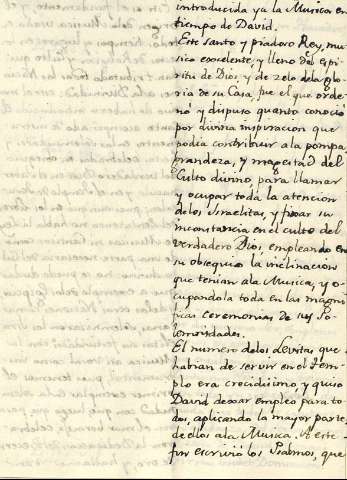 introducida ya la Musica en
tiempo de David.
Este santo y piadoso Rey, mu
sico excelente, y lleno del Espi
ritu de Dios, y de zelo dela glo
ria de su Casa, fue el que orde
nó y dispuso quanto conoció
por divina inspiracion que
podia contribuir ala pompa,
grandeza, y magestad del
Culto divino, para llamar
y ocupar toda la atencion
delos Israelitas, y fixar su
inconstancia en el culto del
verdadero Dios, empleando en
su obsequio la inclinacion
que tenian ala Musica, y o-
cupandola toda en las magni
ficas ceremonias de sus So-
lemnidades.
El numero delos Levitas, que
habian de servir en el Tem-
plo era crecidisimo, y quiso
David dexar empleo para to
dos, aplicando la mayor parte
de ellos ala Musica. A este
fin escrivió los Psalmos, que